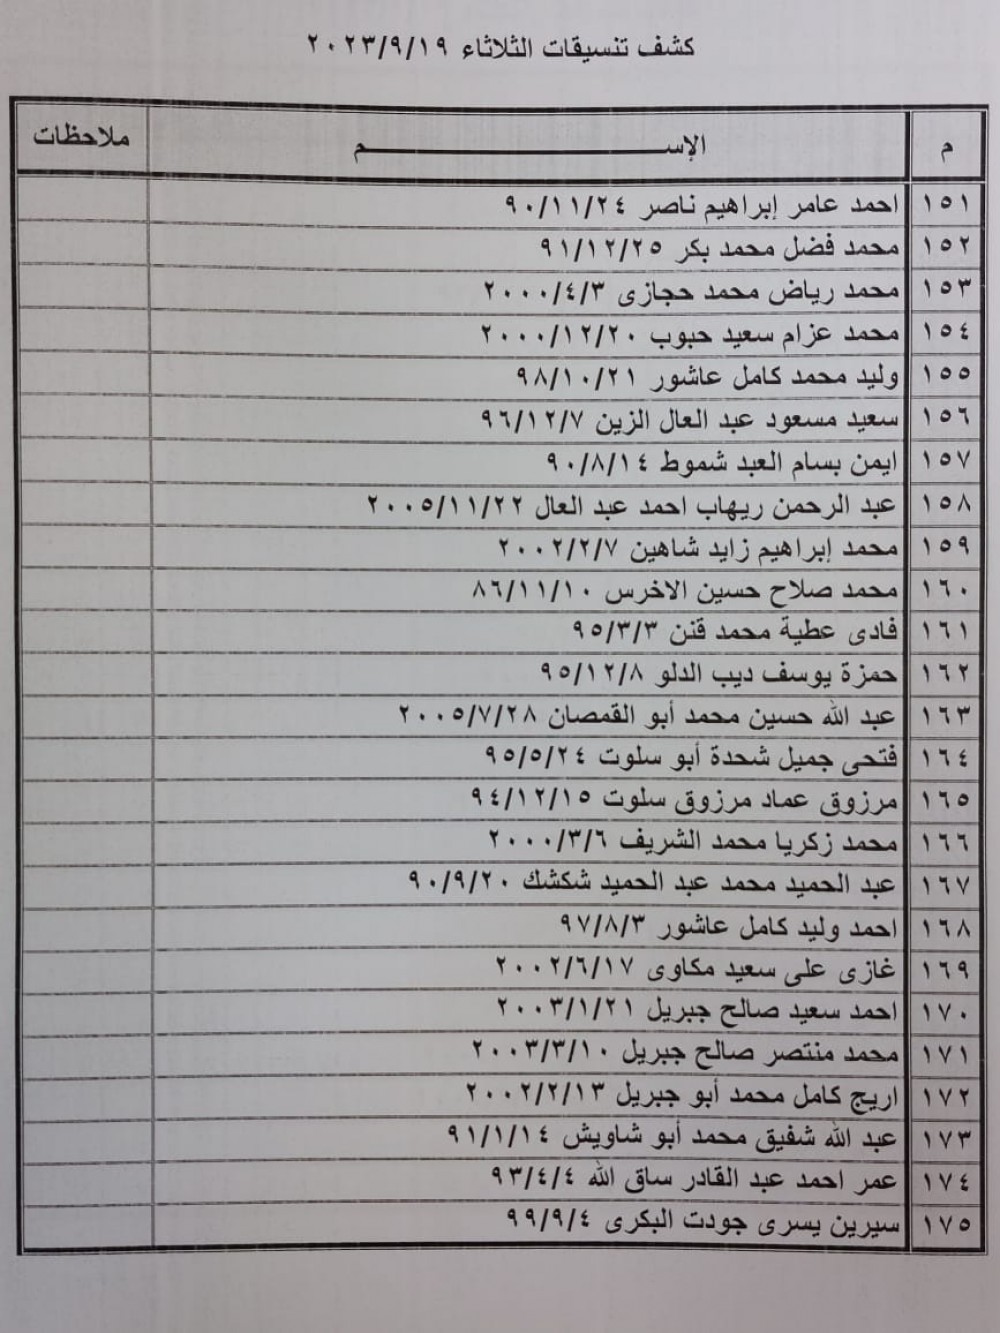 كشف تنسيقات الثلاثاء ٢٠٢٣/٩/١٩
م الإســـــم ملاحظات
١٥١ احمد عامر إبراهيم ناصر ٩٠/١١/٢٤
١٥٢ محمد فضل محمد بكر ٩١/١٢/٢٥
١٥٣ محمد رياض محمد حجازى ٢٠٠٠/٤/٣
١٥٤ محمد عزام سعيد حبوب ٢٠٠٠/١٢/٢٠
١٥٥ وليد محمد كامل عاشور ٩٨/١٠/٢١
١٥٦ سعيد مسعود عبد العال الزين ٩٦/١٢/٧
١٥٧ ايمن بسام العبد شموط ٩٠/٨/١٤
١٥٨ عبد الرحمن ريهاب احمد عبد العال ٢٠٠٥/١١/٢٢
١٥٩ محمد إبراهيم زايد شاهين ٢٠٠٢/٢/٧
١٦٠ محمد صلاح حسين الاخرس ٨٦/١١/١٠
١٦١ فادى عطية محمد قنن ٩٥/٣/٣
١٦٢ حمزة يوسف ديب الدلو ٩٥/١٢/٨
١٦٣ عبد الله حسين محمد أبو القمصان ٢٠٠٥/٧/٢٨
١٦٤ فتحى جميل شحدة أبو سلوت ٩٥/٥/٢٤
١٦٥ مرزوق عماد مرزوق سلوت ٩٤/١٢/١٥
١٦٦ محمد زكريا محمد الشريف ٢٠٠٠/٣/٦
١٦٧ عبد الحميد محمد عبد الحميد شكشك ٩٠/٩/٢٠
١٦٨ احمد وليد كامل عاشور ٩٧/٨/٣
١٦٩ غازى على سعيد مكاوى ٢٠٠٢/٦/١٧
١٧٠ احمد سعيد صالح جبريل ٢٠٠٣/١/٢١
١٧١ محمد منتصر صالح جبريل ٢٠٠٣/٣/١٠
١٧٢ اريج كامل محمد أبو جبريل ٢٠٠٢/٢/١٣
١٧٣ عبد الله شفيق محمد أبو شاويش ٩١/١/١٤
١٧٤ عمر احمد عبد القادر ساق الله ٩٣/٤/٤
١٧٥ سيرين يسرى جودت البكرى ٩٩/٩/٤